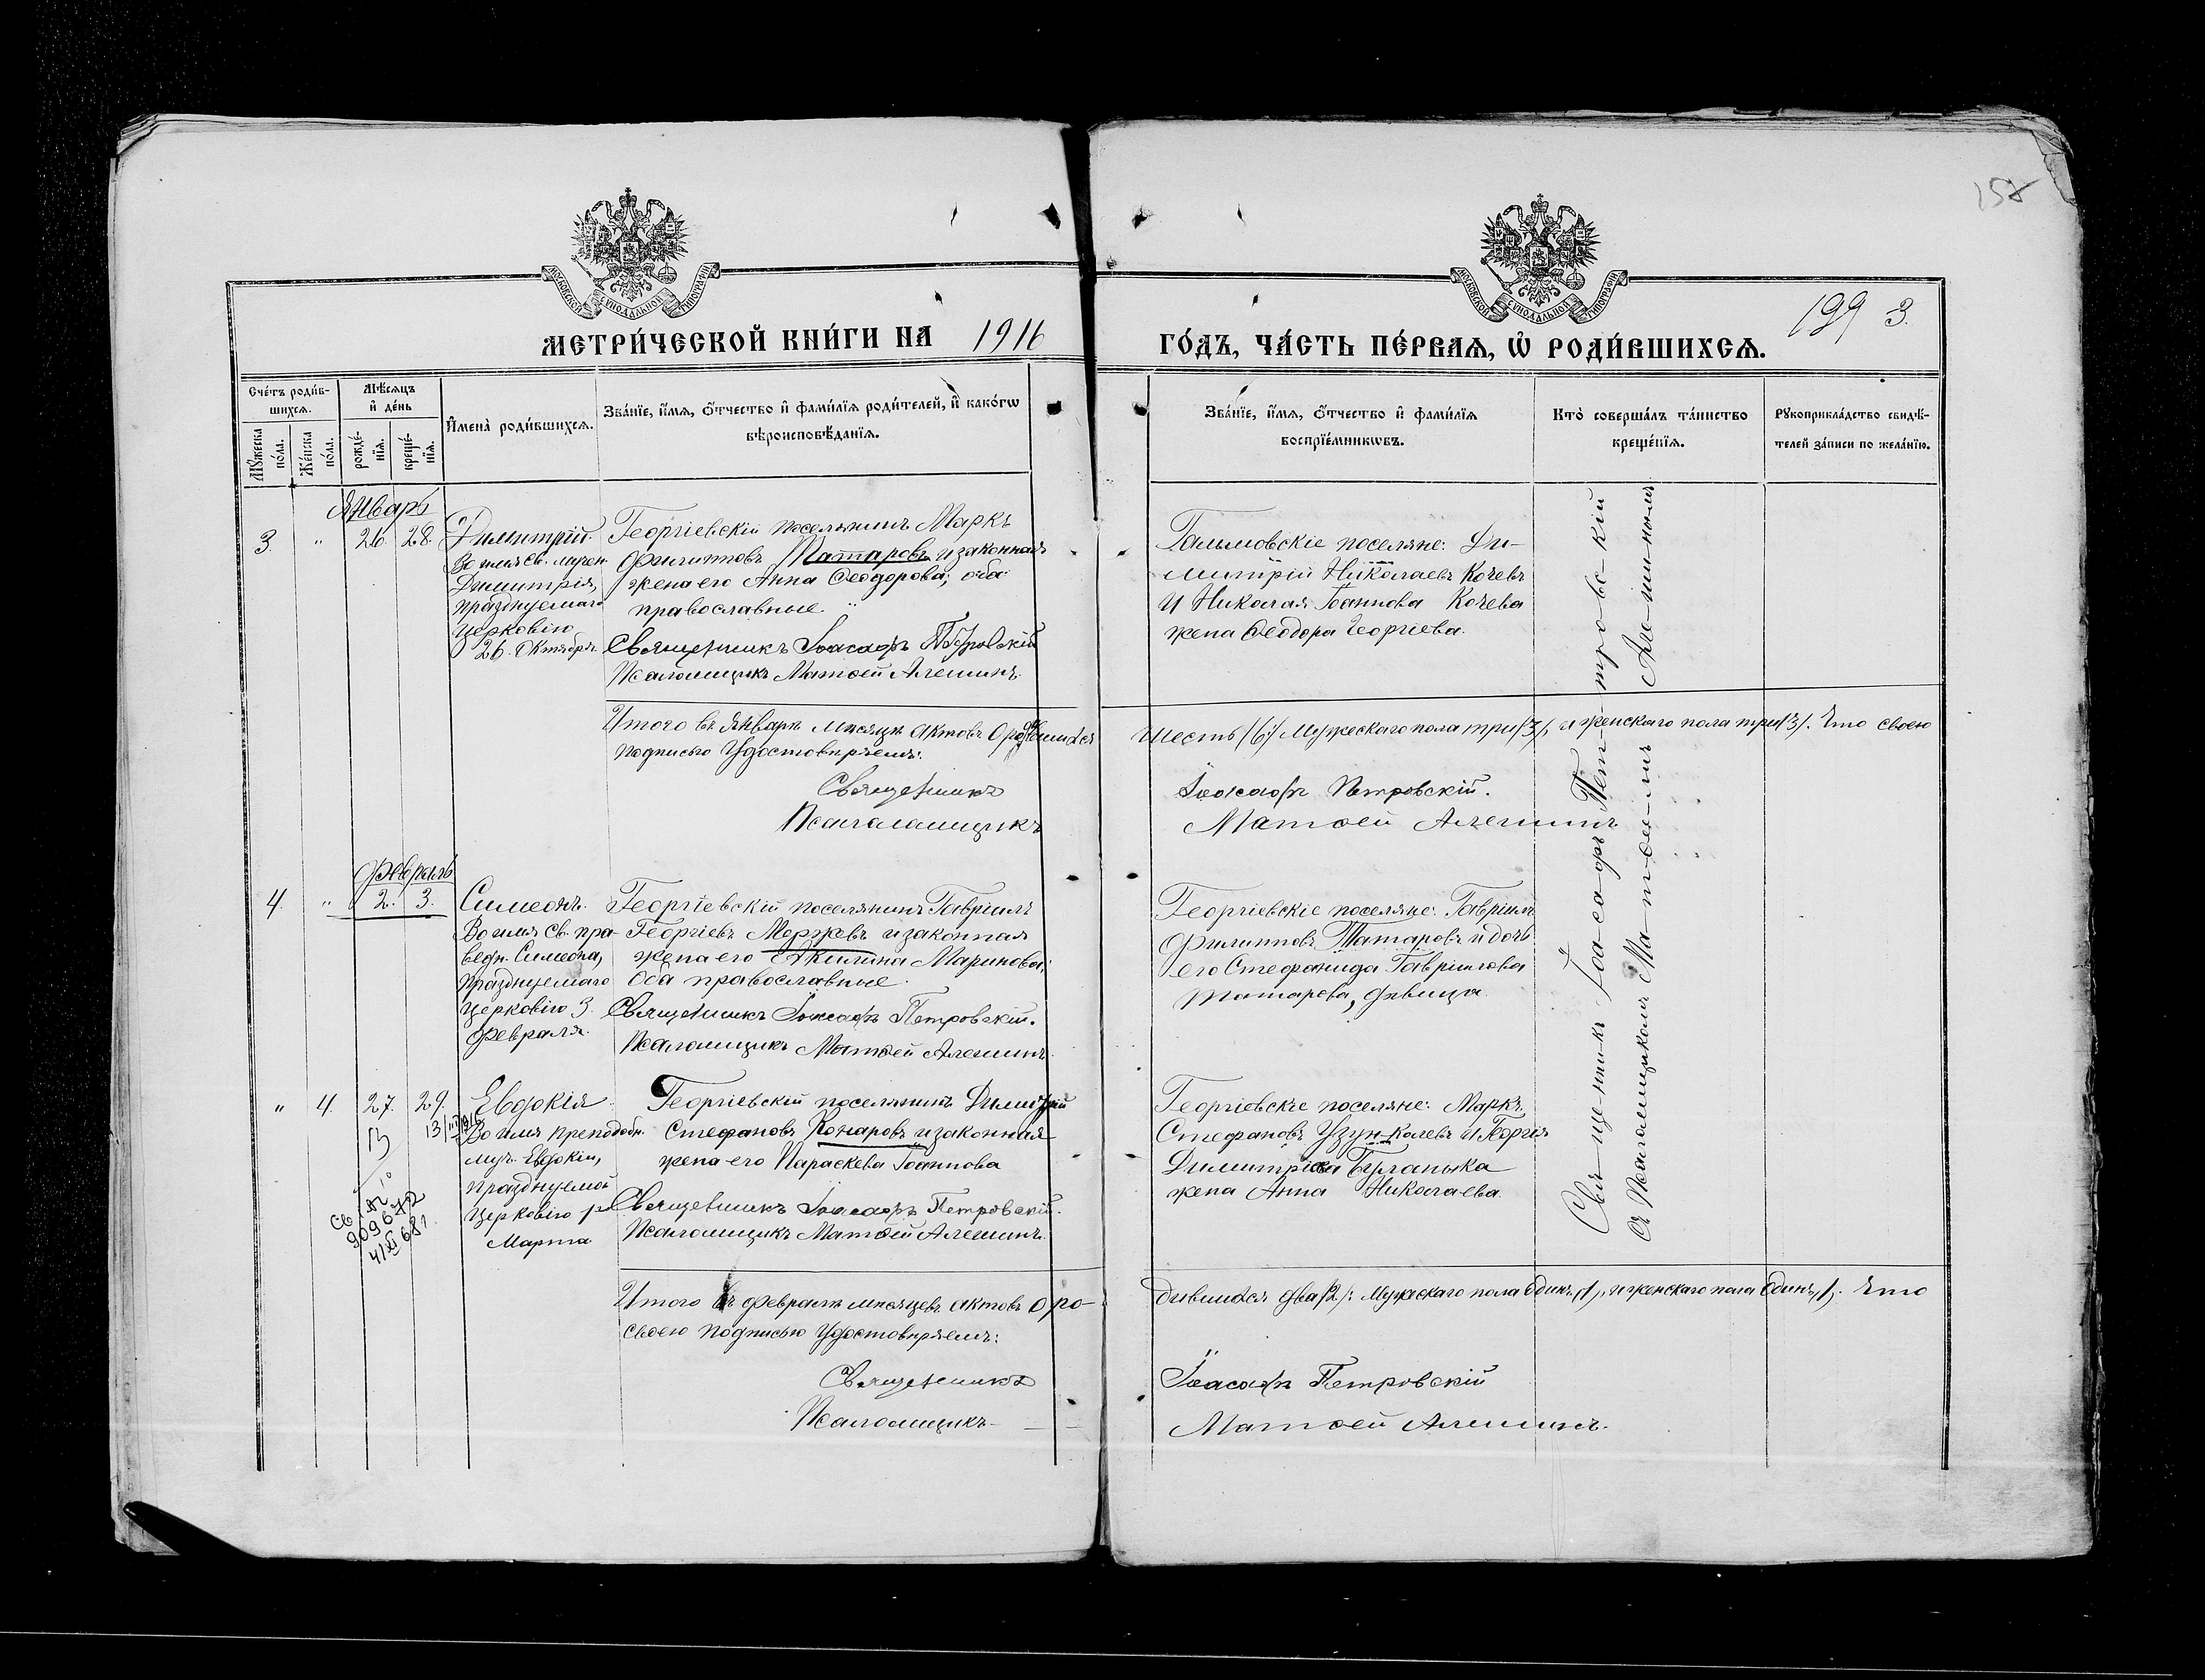 158
МОСКОВСКОЙ СѴНОДАЛЬНОЙ ТИПОГРАФІИ
МОСКОВСКОЙ СѴНОДАЛЬНОЙ ТИПОГРАФІИ
МЕТРИ́ЧЕСКОЙ КНИ́ГИ НА 1916
ГО́ДЪ, ЧА́СТЬ ПЕ́РВАЯ, Ѡ҆ РОДИ́ВШИХСЯ.
199 3.
Сче́тъ роди́в-
шихся.
Мѣ́сяцъ
и҆ де́нь
Мꙋ́жеска
по́ла.
Же́нска
по́ла.
рожде́-
нїя.
креще́-
нїя.
И҆мена̀ роди́вшихся.
Зва́нїе, и҆́мя, ѻ҆́тчество и҆ фами́лїя роди́телей, и҆ како́гѡ
вѣроисповѣ́данїя.
Зва́нїе, и҆́мя, ѻ҆́тчество и҆ фами́лїя
воспрїе́мникѡвъ.
Кто̀ соверша́лъ та́инство
креще́нїя.
Рꙋкоприкла́дство свидѣ́-
телей за́писи по жела́нїю.
Январь
3. " 26. 28. Димитрій.
Во имя св. мучен.
Димитрія,
празднуемаго
церковію
26. Октября.
Георгіевскій поселянинъ Маркъ
Филипповъ Татаровъ и законная
жена его Анна Ѳеодорова; оба
православные.
Священникъ Іоасафъ Петровскій
Псаломщикъ Матѳей Алешинъ.
Гальмовскіе поселяне: Ди-
митрій Николаевъ Кочевъ
и Николая Іоаннова Кочева
жена Ѳеодора Георгіева.
Итого въ Январѣ мѣсяцѣ актовъ о родившихся
Шесть (6:) Мужескаго пола три (3), и женскаго пола три (3). Что своею
подписью удостовѣряемъ:
Священникъ Іоасафъ Петровскій.
Псаломщикъ Матѳей Алешинъ
Февраль
4. " 2. 3. Симеонъ.
Во имя св. пра-
ведн. Симеона,
празднуемаго
церковію 3.
Февраля.
Георгіевскій поселянинъ Гавріилъ
Георгіевъ Моржевъ и законная
жена его Акилина Маринова;
оба православные.
Священникъ Іоасафъ Петровскій.
Псаломщикъ Матѳей Алешинъ.
Георгіевскіе поселяне: Гавріилъ
Филипповъ Татаровъ и дочь
его Стефанида Гавріилова
Татарова, дѣвица.
" 4. 27. 29. Евдокія
Во имя преподобн.
муч. Евдокіи,
празднуемой
церковію 1-го
Марта
13
909672
4/XI 68 г.
Георгіевскій поселянинъ Димитрій
Стефановъ Конаровъ и законная
жена его Параскева Іоаннова
Священникъ Іоасафъ Петровскій.
Псаломщикъ Матѳей Алешинъ.
Георгіевскіе поселяне: Маркъ
Стефановъ Узун-Колевъ и Георгія
Димитріева
жена Анна Николаева.
Священникъ Іоасафъ Петровскій
съ Псаломщикомъ Матѳеемъ Алешинымъ
Итого въ Февралѣ мѣсяцѣ актовъ о ро-
дившихся два (2): Мужескаго пола одинъ (1), и женскаго пола одинъ (1). Что
своею подписью удостовѣряемъ:
Священникъ Іоасафъ Петровскій
Псаломщикъ Матѳей Алешинъ.